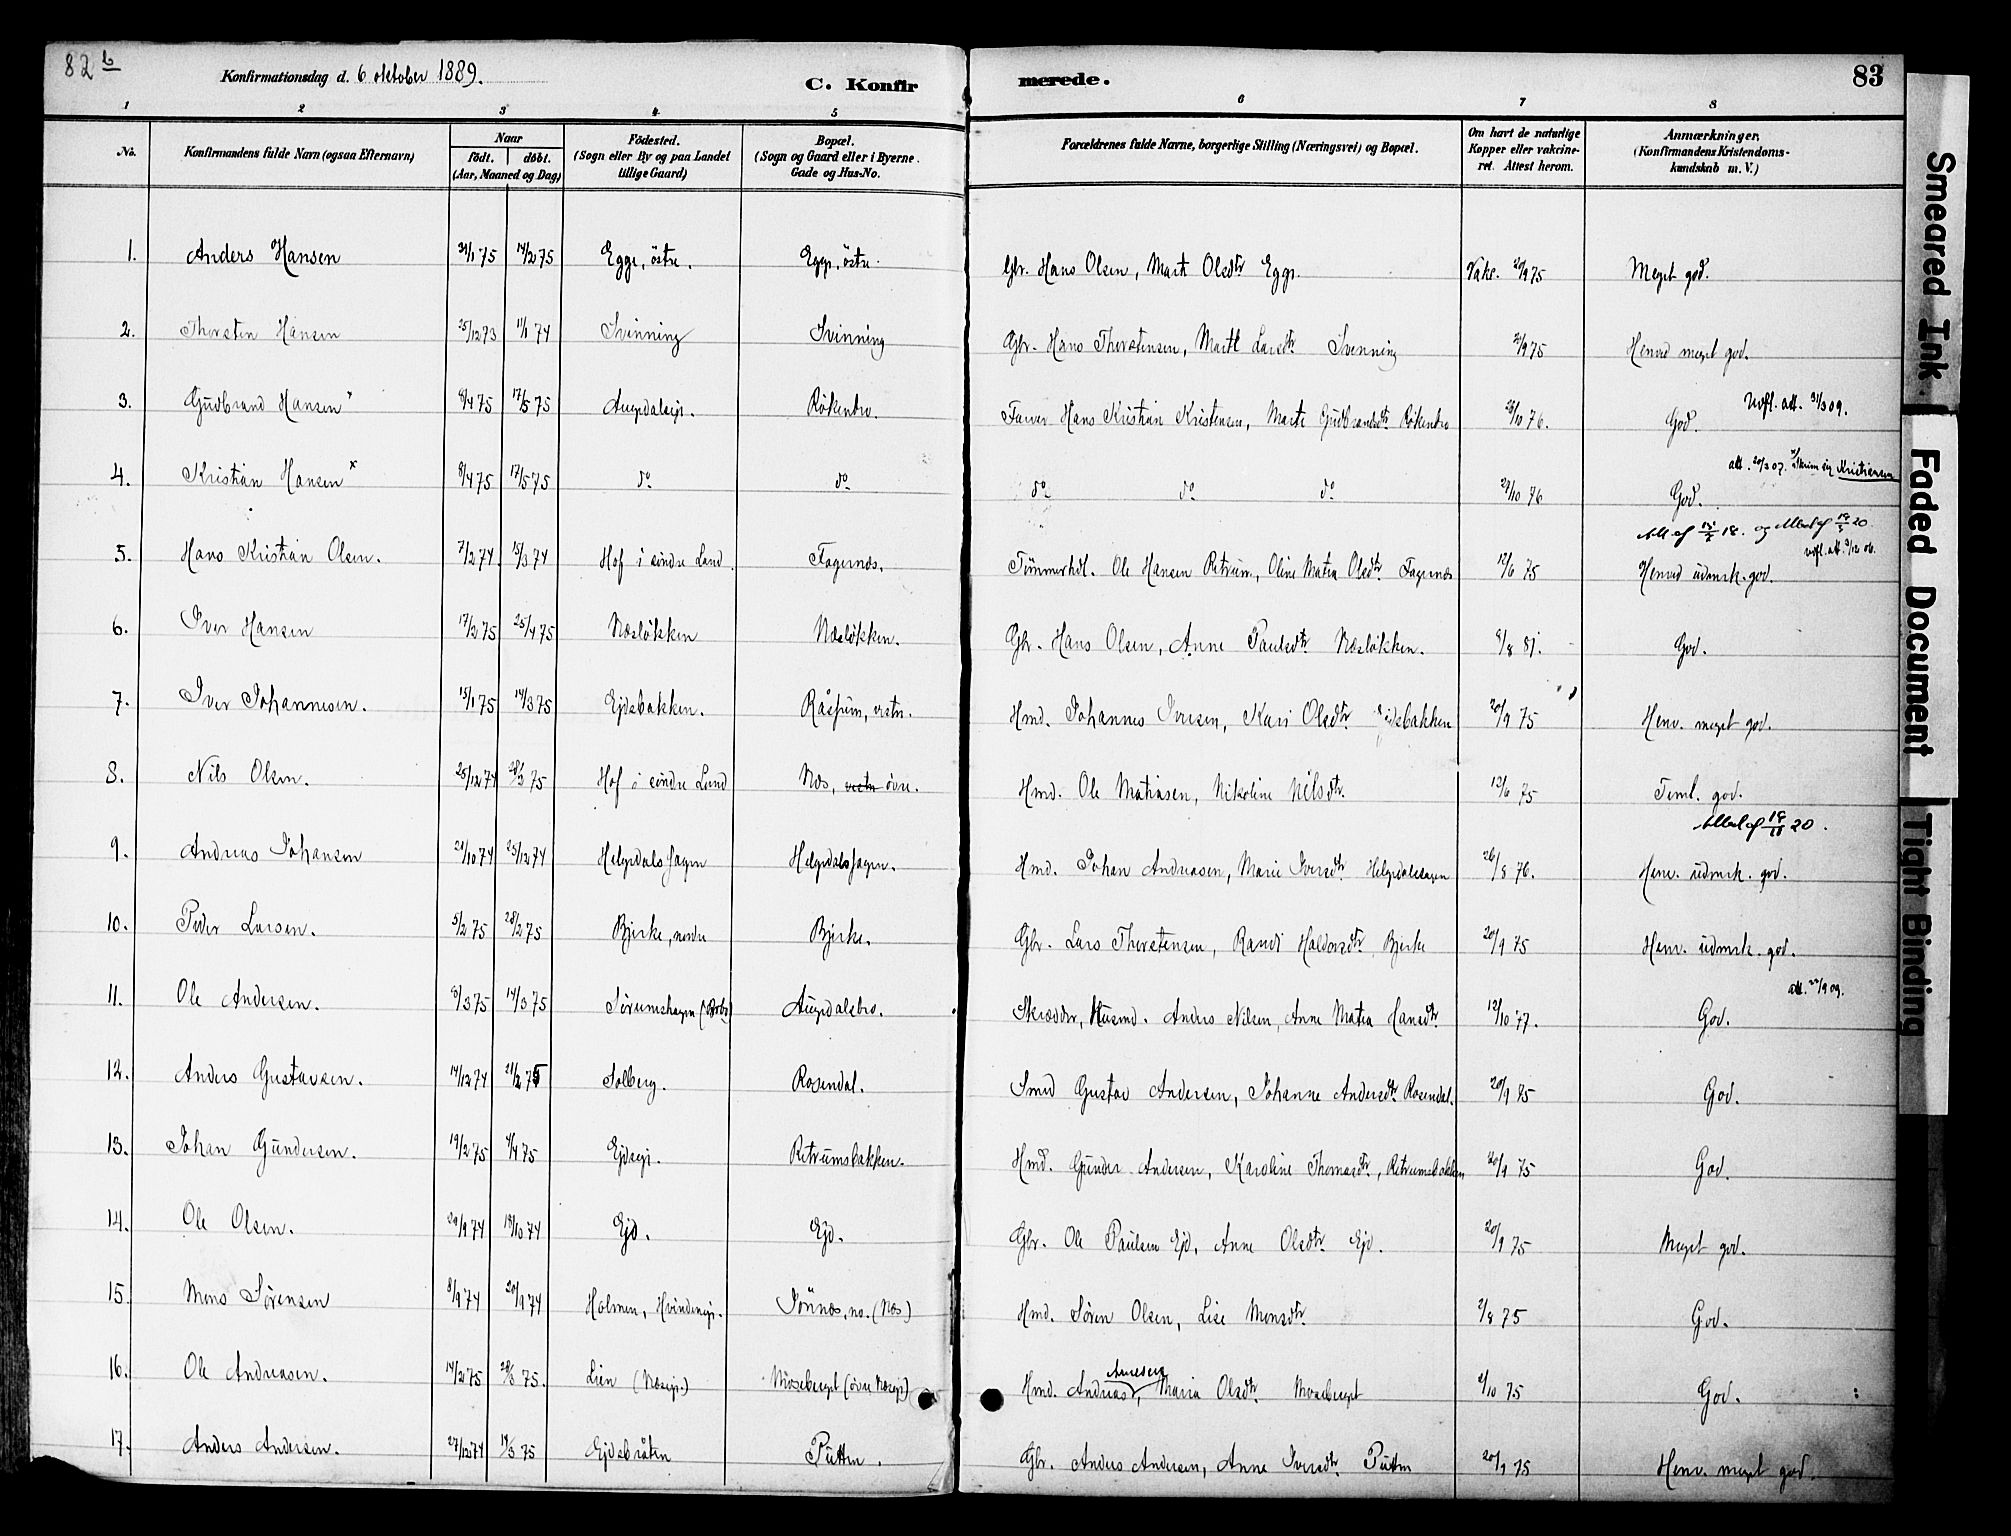 82 b
Konfirmationsdag d. 6 oktober 1889.
C. Konfir
merede.
83
1 2 3 4 5 6 7 8
No.
Konfirmandens fulde Navn (ogsaa Efternavn)
Naar
födt. döbt.
(Aar, Maaned og Dag)
Födested.
(Sogn eller By og paa Landet
tillige Gaard)
Bopæl.
(Sogn og Gaard eller i Byerne
Gade og Hus-No.
Forældrenes fulde Navne, borgerlige Stilling (Næringsvei) og Bopæl.
Om havt de naturlige
Kopper eller vakcine-
ret. Attest herom.
Anmærkninger.
(Konfirmandens Kristendoms-
kundskab m. V.)
1. Anders Hansen 14/2 75 Egge, östre. Egge, östre. Gbr. Hans Olsen, Marte Olsdtr Egge. Vakc. 20/9 75 Meget god.
2. Thorsten Hansen 25/12 73 11/1 74 Svinning Svinning Gbr. Hans Thorstensen, Marte Larsdtr Svenning 75 Henved meget god.
Udfl. att. 31/3 09.
3. Gudbrand Hansen 8/4 75 17/5 75 Augedalseje. Rökenbro. Farver Hans Kristian Kristensen, Marte Gudbrandsdtr Rökenbro /10 76. God.
att. 20/3 07. Skriver sig Kristiansen
4. Kristian Hansen x 8/4 75 17/5 75 do do do do do 28/10 76 God.
18. og 20
udfl. att. 06.
5. Hans Kristian Olsen. 7/2 74. 15/3 74 Hof i söndre Land. Fagernæs. Tömmerhdl. Ole Hansen Retrum, Oline Matea Olsdtr. Fagernæs 12/6 75 Henved udmrk. god.
6. Iver Hansen 17/2 75 25/4 75 Næslökken Næslökken. Gbr. Hans Olsen, Anne Paulsdtr Næslökken. 8/8 81. God.
7. Iver Johannesen. 15/1 75 14/3 75 Ejdsbakken. Råssum, vestre. Hmd. Johannes Iversen, Kari Olsdtr Ejdsbakken 20/9 75 Henv. meget god.
8. Nils Olsen. 25/12 74 28/3 75 Hof i söndre Land Næs, vestre övre. Hmd. Ole Matiasen, Nikoline Nilsdtr. 12/6 75 Teml. god.
20.
9. Andreas Johansen 10 74 25/12 74 Helgedalshagen Helgedalshagen. Hmd. Johan Andreasen, Marie Iversdtr. Helgedalshagen 26/8 76. Henv. udmrk. god.
10. Peder Larsen. 5/2 75 28/2 75 Bjerke, nordre Bjerke. Gbr. Lars Thorstensen, Randi Haldorsdtr. Bjerke 20/9 75 Henv. udmrk. god.
att. 22/9 09.
11. Ole Andersen. 8/3 75 14/3 75 Sørumshagen Augedalsbro. Skrædder, Husmd. Anders Nilsen, Anne Matea Hansdtr. 12/10 77. God.
12. Anders Gustavsen. 14/12 74 21/2 75 Solberg. Rosendal. Smed Gustav Andersen, Johanne Andersdtr. Rosendal. 20/9 75 God.
13. Johan Gundersen. 19/2 75 4/4 75 Ejdseje. Retrumsbakken. Hmd. Gunder Andersen, Karoline Thomasdtr, Retrumsbakken 20/9 75 God.
14. Ole Olsen. 29/9 74 18/10 74 Ejd. Ejd. Gbr. Ole Paulsen Ejd, Anne Olsdtr. Ejd. 20/9 75 Meget god.
15. Mons Sørensen 8/9 74 20/9 74 Holmen, Hvindeneje. Sönnæs, no. (Næs) Hmd. Søren Olsen, Lise Monsdtr. 2/8 75 God.
16. Ole Andreasen. 14/2 75 28/3 75. Lien (Næseje.) Moseberget (övre Næseje) Hmd. Andreas Amundsen, Maria Olsdtr. Moseberget 2/10 75 God.
17. Anders Andersen. 27/12 74 14/3 75 Ejdsbråten Putten. Gbr. Anders Andersen, Anne Iversdtr. Putten 20/9 75 Henv. meget god.
Smeared Ink.
Faded Document
Tight Binding